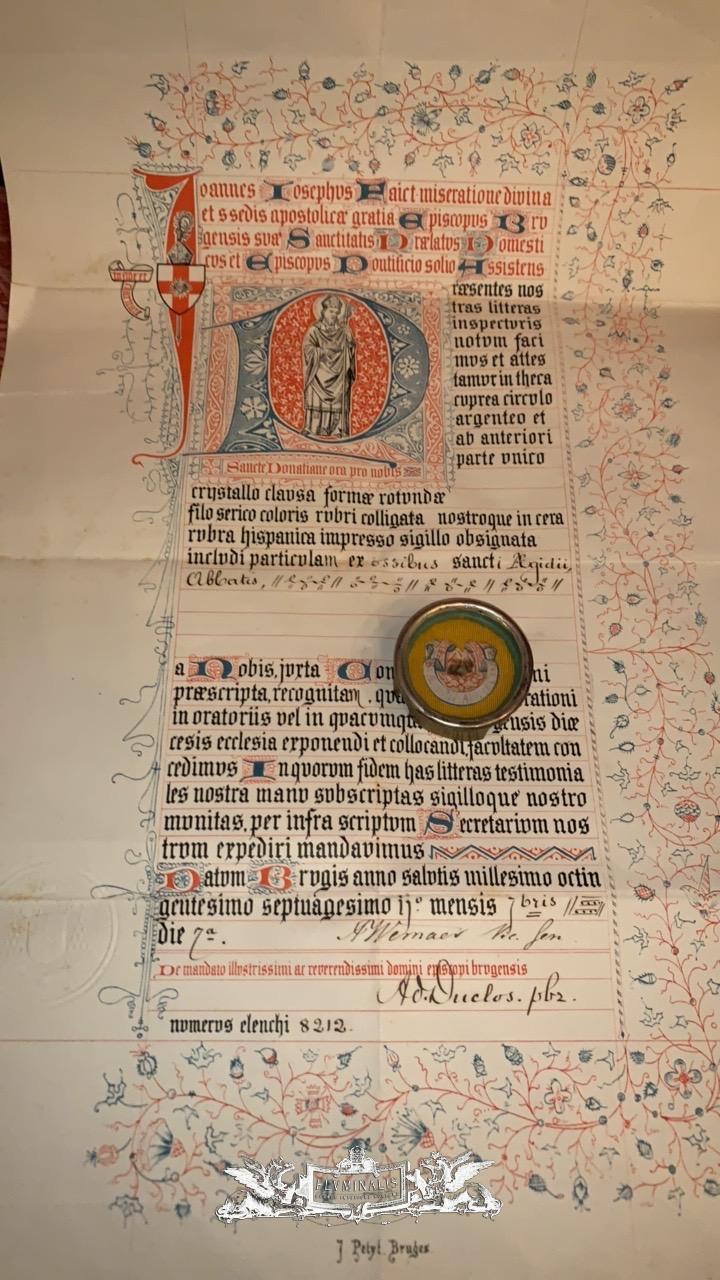 Ioannes Iosephvs Faict miseratione divina
et s sedis apostolicæ gratia Episcopvs Brv
gensis svæ Sanctitatis Prælatvs Domesti
cvs et Episcopvs Pontificio solio Assistens
Præsentes nos
tras litteras
inspectvris
notvm faci
mvs et attes
tamvr in theca
cvprea circvlo
argenteo et
ab anteriori
parte vnico
Sancte Donatiane ora pro nobis
crystallo clavsa formæ rotvndæ
filo serico coloris rvbri colligata nostroque in cera
rvbra hispanica impresso sigillo obsignata
inclvdi particvlam ex ossibus sancti Ægidii,
Abbatis,
a Nobis, jvxta Con ni
præscripta, recognitam, qva rationi
in oratoriis vel in qvacvmqve gensis diœ
cesis ecclesia exponendi et collocandi, facvltatem con
cedimvs In qvorvm fidem has litteras testimonia
les nostra manv svbscriptas sigilloqve nostro
mvnitas, per infra scriptvm Secretarivm nos
trvm expediri mandavimvs
Datvm Brvgis anno salvtis millesimo octin
gentesimo septvagesimo ijº mensis 7bris
die 7ª.
De mandato illvstrissimi ac reverendissimi domini episcopi brvgensis
Ad. Duclos. pbr.
nvmervs elenchi 8212.
FLVMINALIS
J Petyt Bruges